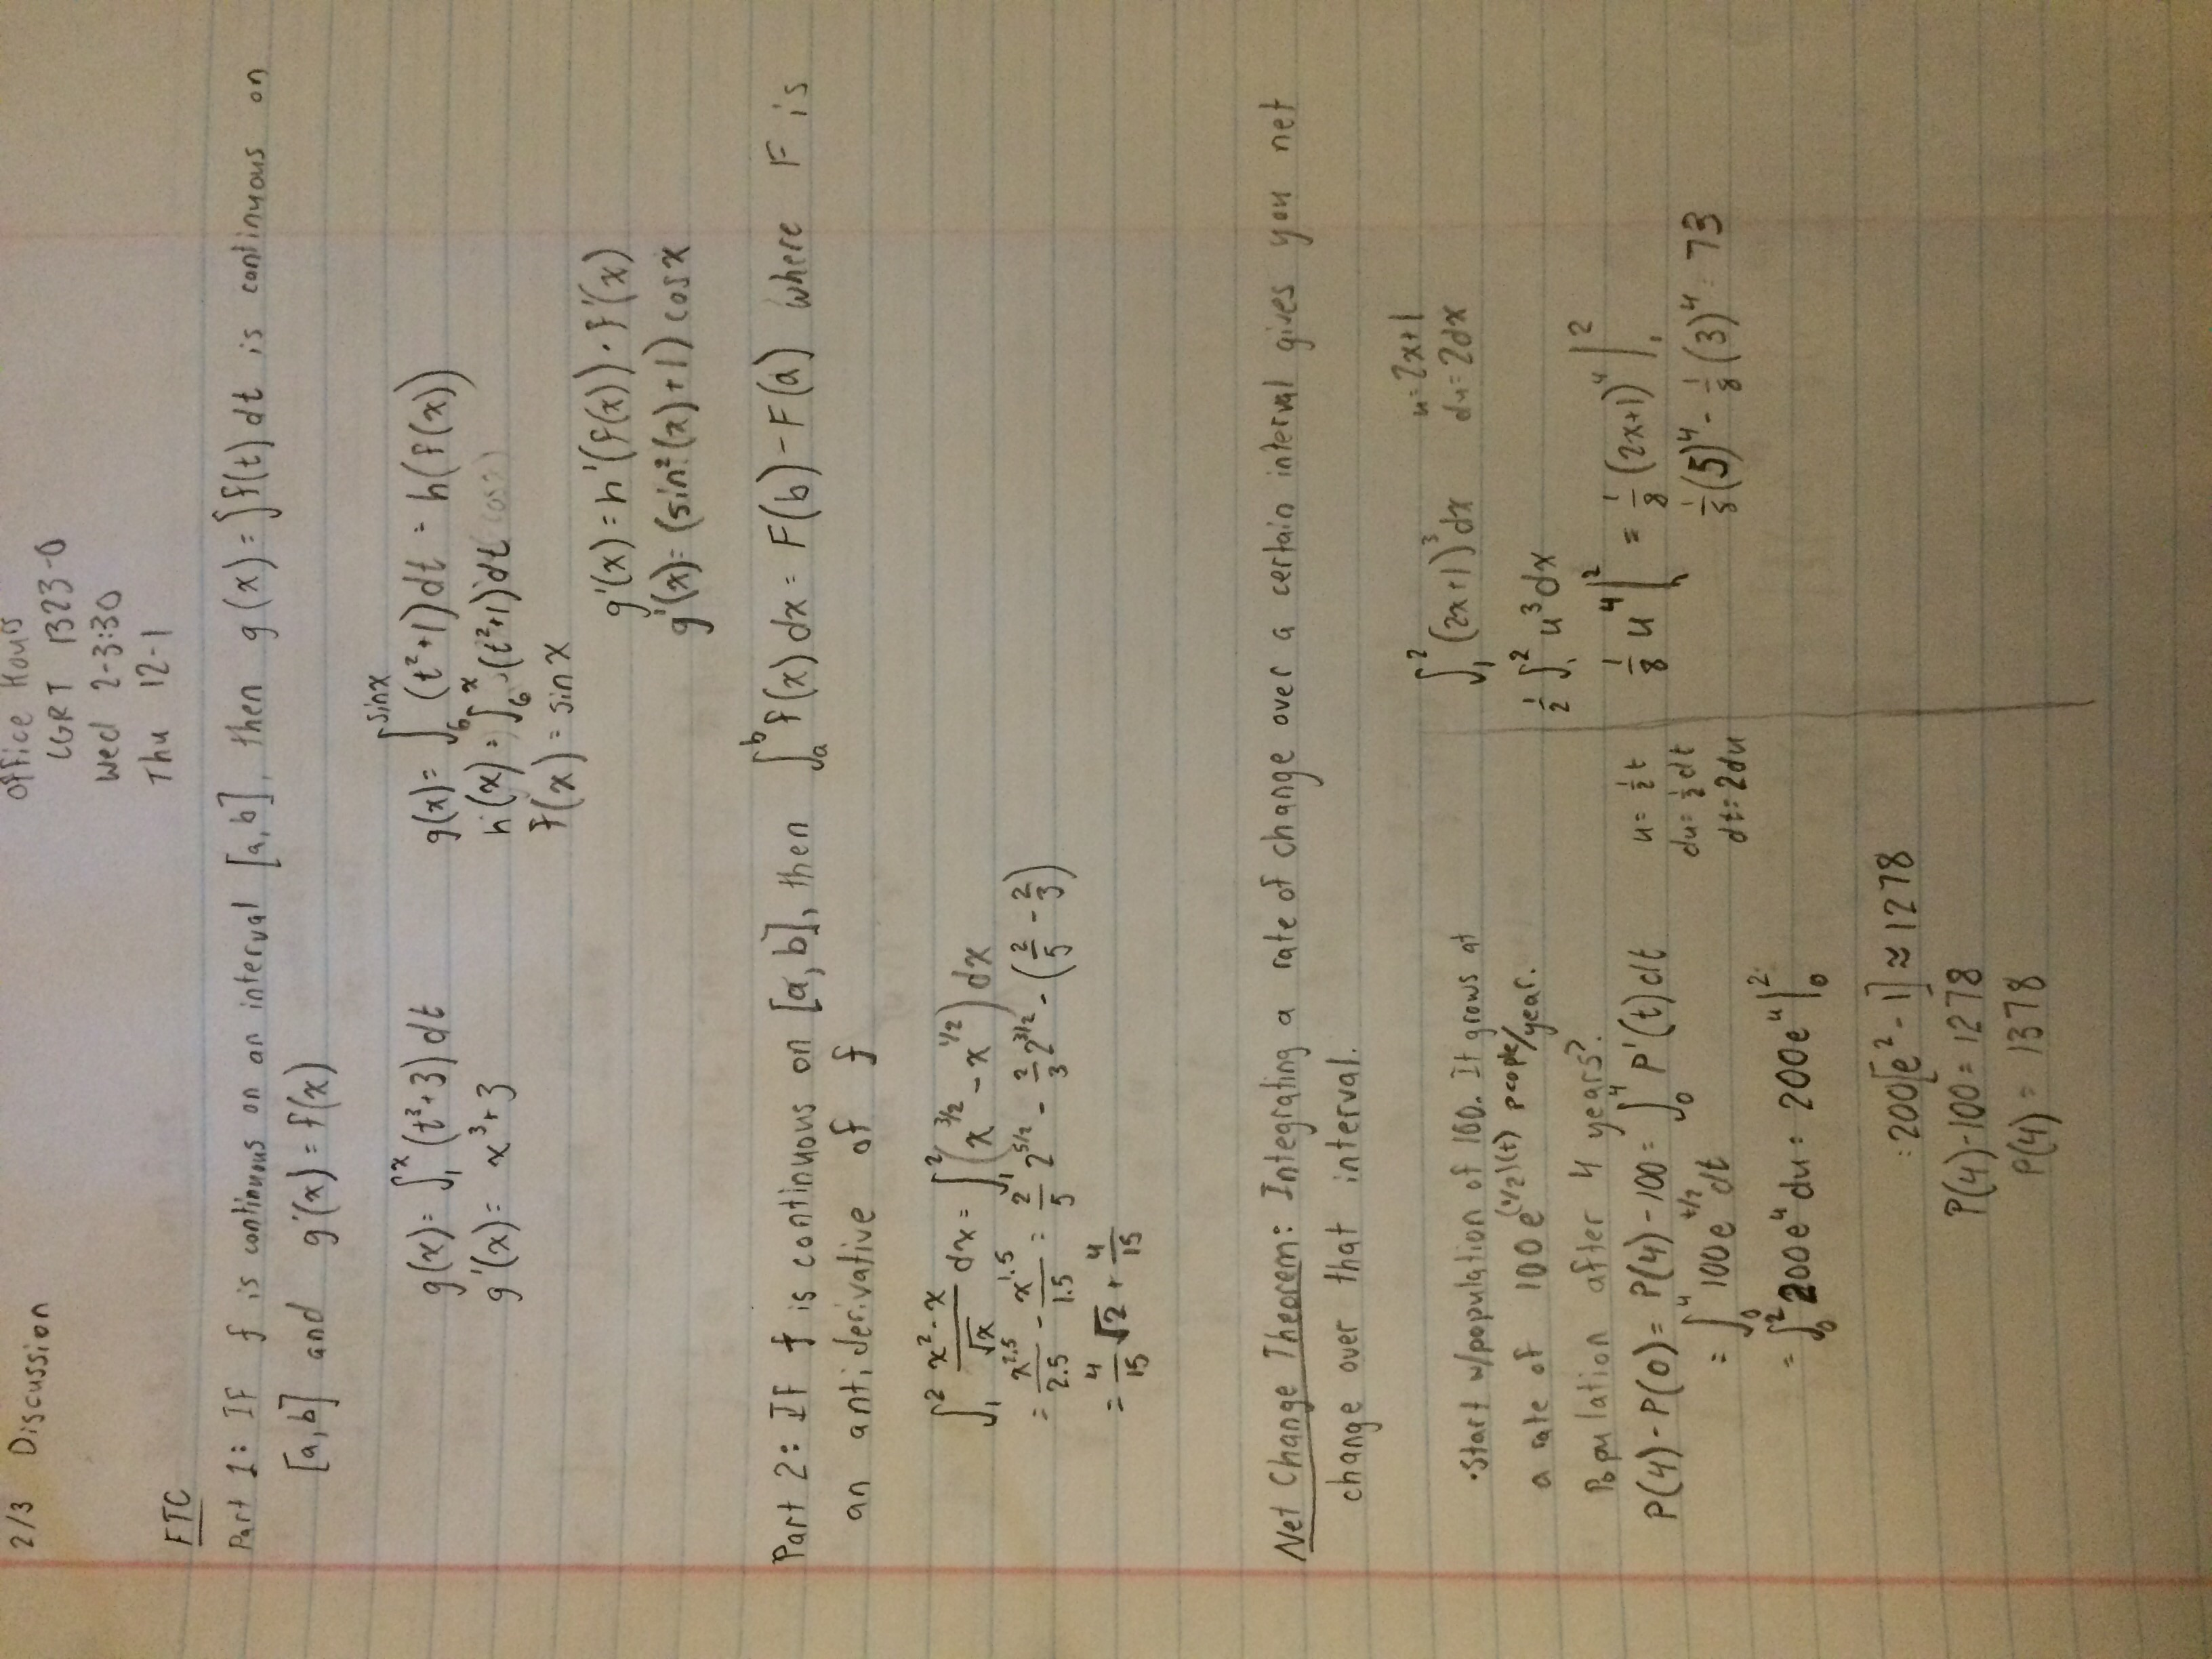 2/3 Discussion
Office Hours
CGRT 1323-O
Wed 2-3:30
Thu 12-1
FTC
Part 1: If f is continuous on an interval [a,b], then g(x) = ∫f(t)dt is continuous on
[a,b] and g'(x) = f(x)
g(x) = ∫₁ˣ (t³+3)dt
g'(x) = x³+3
g(x) = ∫₆^sinx (t²+1)dt = h(f(x))
h(x) = ∫₆ˣ (t²+1)dt (cosx)
f(x) = sinx
g'(x) = h'(f(x)) · f'(x)
g'(x) = (sin²(x)+1) cosx
Part 2: If f is continuous on [a,b], then ∫ₐᵇ f(x)dx = F(b) - F(a) where F is
an antiderivative of f
∫₁² (x²-x)/√x dx = ∫₁² (x^(3/2) - x^(1/2)) dx
= x^2.5/2.5 - x^1.5/1.5 = 2/5 2^(5/2) - 2/3 2^(3/2) - (2/5 - 2/3)
= 4/15 √2 + 4/15
Net Change Theorem: Integrating a rate of change over a certain interval gives you net
change over that interval.
• Start w/population of 100. It grows at
a rate of 100e^(1/2)(t) people/year.
Population after 4 years?
P(4) - P(0) = P(4) - 100 = ∫₀⁴ P'(t)dt
= ∫₀⁴ 100e^(t/2) dt
u = ½t
du = ½dt
dt = 2du
= ∫₀² 200e^u du = 200e^u |₀²
= 200[e² - 1] ≈ 1278
P(4) - 100 = 1278
P(4) = 1378
∫₁² (2x+1)³dx
u = 2x+1
du = 2dx
½ ∫₁² u³dx
⅛ u⁴ |₁² = ⅛ (2x+1)⁴ |₁²
⅛(5)⁴ - ⅛(3)⁴ = 73